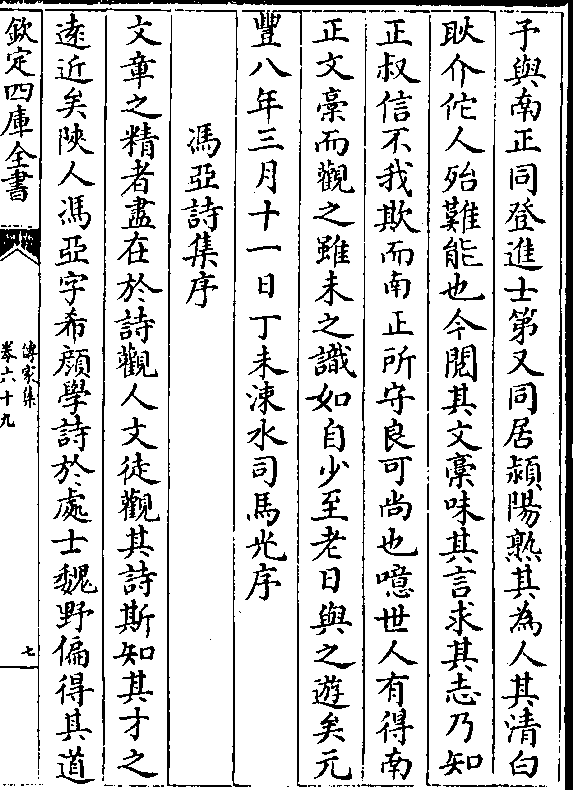 予與南正同登進士第又同居潁陽熟其為人其清白
耿介佗人殆難能也今閱其文藁味其言求其志乃知
正叔信不我欺而南正所守良可尚也噫世人有得南
正文藁而觀之雖未之識如自少至老日與之遊矣元
豐八年三月十一日丁未涑水司馬光序
馮亞詩集序
文章之精者盡在於詩觀人文徒觀其詩斯知其才之
遠近矣陜人馮亞字希顔學詩於處士魏野偏得其道
欽定四庫全書
傳家集
卷六十九
七